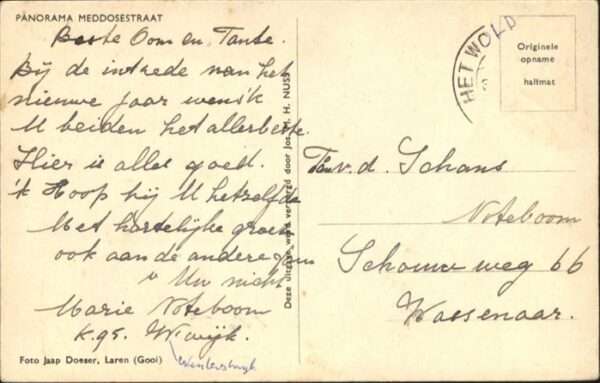 PANORAMA MEDDOSESTRAAT
Beste Oom en Tante.
Bij de intrede van het
nieuwe jaar wensch ik
U beiden het allerbeste.
Hier is alles goed.
'k Hoop bij U hetzelfde
Met hartelijke groeten
ook aan de andere
v Uw nicht
Marie Noteboom
K.gs. W.wijk.
Winterswijk
Foto Jaap Doeser, Laren (Gooi)
Deze uitgave werd verzorgd door Jos. H. NUSS
HET WOLD
Originele
opname
halfmat
Fam. v.d. Schans
Noteboom
Schouwweg 66
Wassenaar.